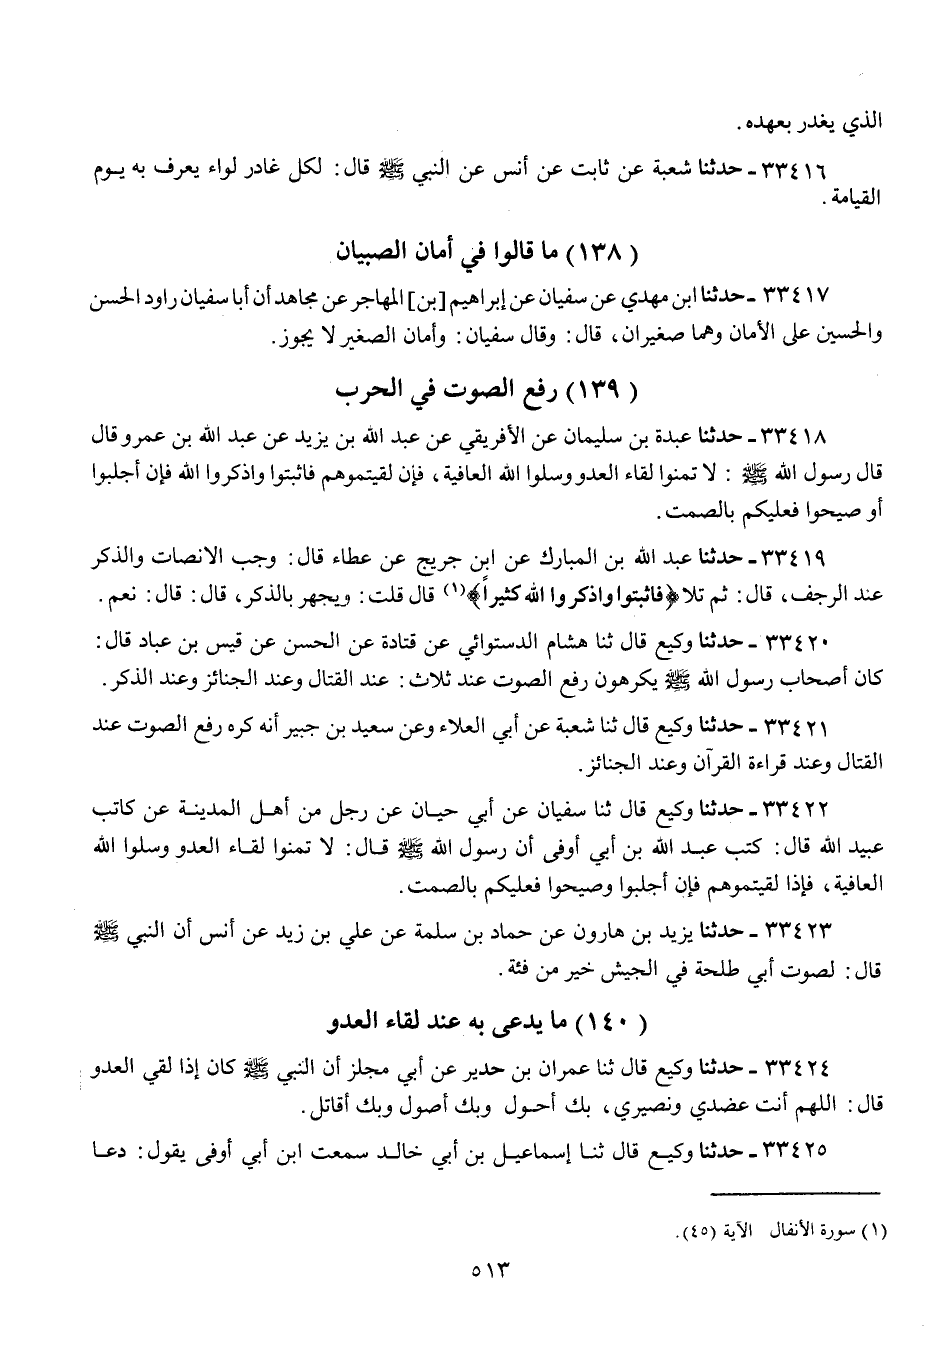 الذي يغدر بعهده.
٣٣٤١٦ - حدثنا شعبة عن ثابت عن أنس عن النبي ﷺ قال: لكل غادر لواء يعرف به يوم
القيامة.
(١٣٨) ما قالوا في أمان الصبيان
٣٣٤١٧ - حدثنا ابن مهدي عن سفيان عن إبراهيم [بن] المهاجر عن مجاهد أن أبا سفيان راود الحسن
والحسين على الأمان وهما صغيران، قال: وقال سفيان: وأمان الصغير لا يجوز.
(١٣٩) رفع الصوت في الحرب
٣٣٤١٨ - حدثنا عبدة بن سليمان عن الأفريقي عن عبد الله بن يزيد عن عبد الله بن عمرو قال
قال رسول الله ﷺ : لا تمنوا لقاء العدو وسلوا الله العافية، فإن لقيتموهم فاثبتوا واذكروا الله فإن أجلبوا
أو صيحوا فعليكم بالصمت.
٣٣٤١٩ - حدثنا عبد الله بن المبارك عن ابن جريج عن عطاء قال: وجب الانصات والذكر
عند الرجف، قال: ثم تلا ﴿فاثبتوا واذكروا الله كثيراً﴾(١) قال قلت: ويجهر بالذكر، قال: قال: نعم.
٣٣٤٢٠ - حدثنا وكيع قال ثنا هشام الدستوائي عن قتادة عن الحسن عن قيس بن عباد قال:
كان أصحاب رسول الله ﷺ يكرهون رفع الصوت عند ثلاث: عند القتال وعند الجنائز وعند الذكر.
٣٣٤٢١ - حدثنا وكيع قال ثنا شعبة عن أبي العلاء وعن سعيد بن جبير أنه كره رفع الصوت عند
القتال وعند قراءة القرآن وعند الجنائز.
٣٣٤٢٢ - حدثنا وكيع قال ثنا سفيان عن أبي حيان عن رجل من أهل المدينة عن كاتب
عبيد الله قال: كتب عبد الله بن أبي أوفى أن رسول الله ﷺ قال: لا تمنوا لقاء العدو وسلوا الله
العافية، فإذا لقيتموهم فإن أجلبوا وصيحوا فعليكم بالصمت.
٣٣٤٢٣ - حدثنا يزيد بن هارون عن حماد بن سلمة عن علي بن زيد عن أنس أن النبي ﷺ
قال: لصوت أبي طلحة في الجيش خير من فئة.
(١٤٠) ما يدعى به عند لقاء العدو
٣٣٤٢٤ - حدثنا وكيع قال ثنا عمران بن حدير عن أبي مجلز أن النبي ﷺ كان إذا لقي العدو
قال: اللهم أنت عضدي ونصيري، بك أحول وبك أصول وبك أقاتل.
٣٣٤٢٥ - حدثنا وكيع قال ثنا إسماعيل بن أبي خالد سمعت ابن أبي أوفى يقول: دعا
(١) سورة الأنفال الآية (٤٥).
٥١٣